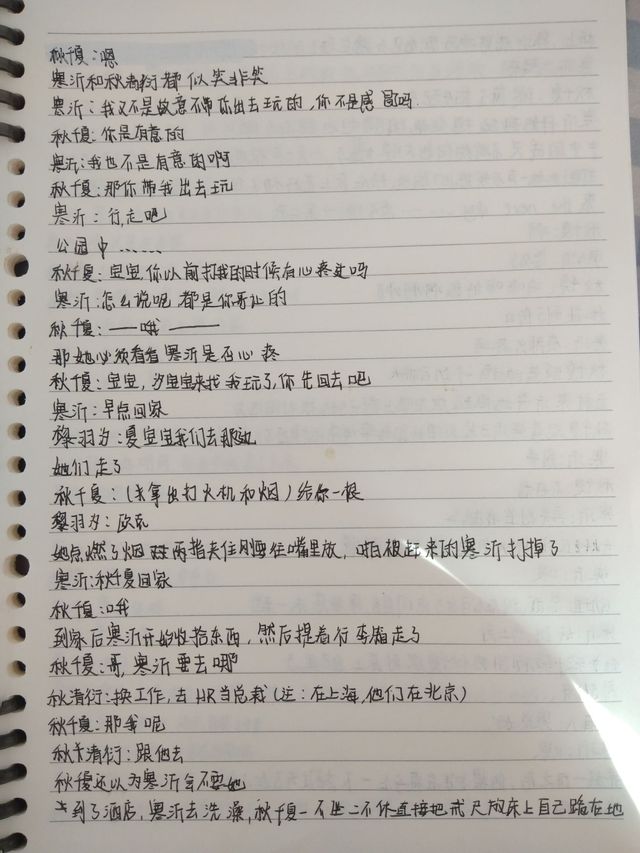 秋千夏:嗯
寒沂和秋清衍都似笑非笑
寒沂:我又不是故意不带你出去玩的,你不是感冒吗.
秋千夏:你是有意的
寒沂:我也不是有意的啊
秋千夏:那你带我出去玩
寒沂:行,走吧
公园中……
秋千夏:宝宝你以前打我的时候有心疼过吗
寒沂:怎么说呢都是你哥让的
秋千夏:——哦——
那她必须看看寒沂是否心疼
秋千夏:宝宝,汐宝宝来找我玩了,你先回去吧
寒沂:早点回家
黎羽汐:夏宝宝我们去那边
她们走了
秋千夏:(拿出打火机和烟)给你一根
黎羽汐:欧克
她点燃了烟 两指夹住刚要往嘴里放,啪被赶来的寒沂打掉了
寒沂:秋千夏回家
秋千夏:哦
到家后寒沂开始收拾东西,然后提着行李箱走了
秋千夏:哥,寒沂要去哪
秋清衍:换工作,去HR当总裁(注:在上海,他们在北京)
秋千夏:那我呢
秋清衍:跟他去
秋千夏还以为寒沂会不要她
到了酒店,寒沂去洗澡,秋千夏一不坐二不休直接把戒尺放床上自己跪在地